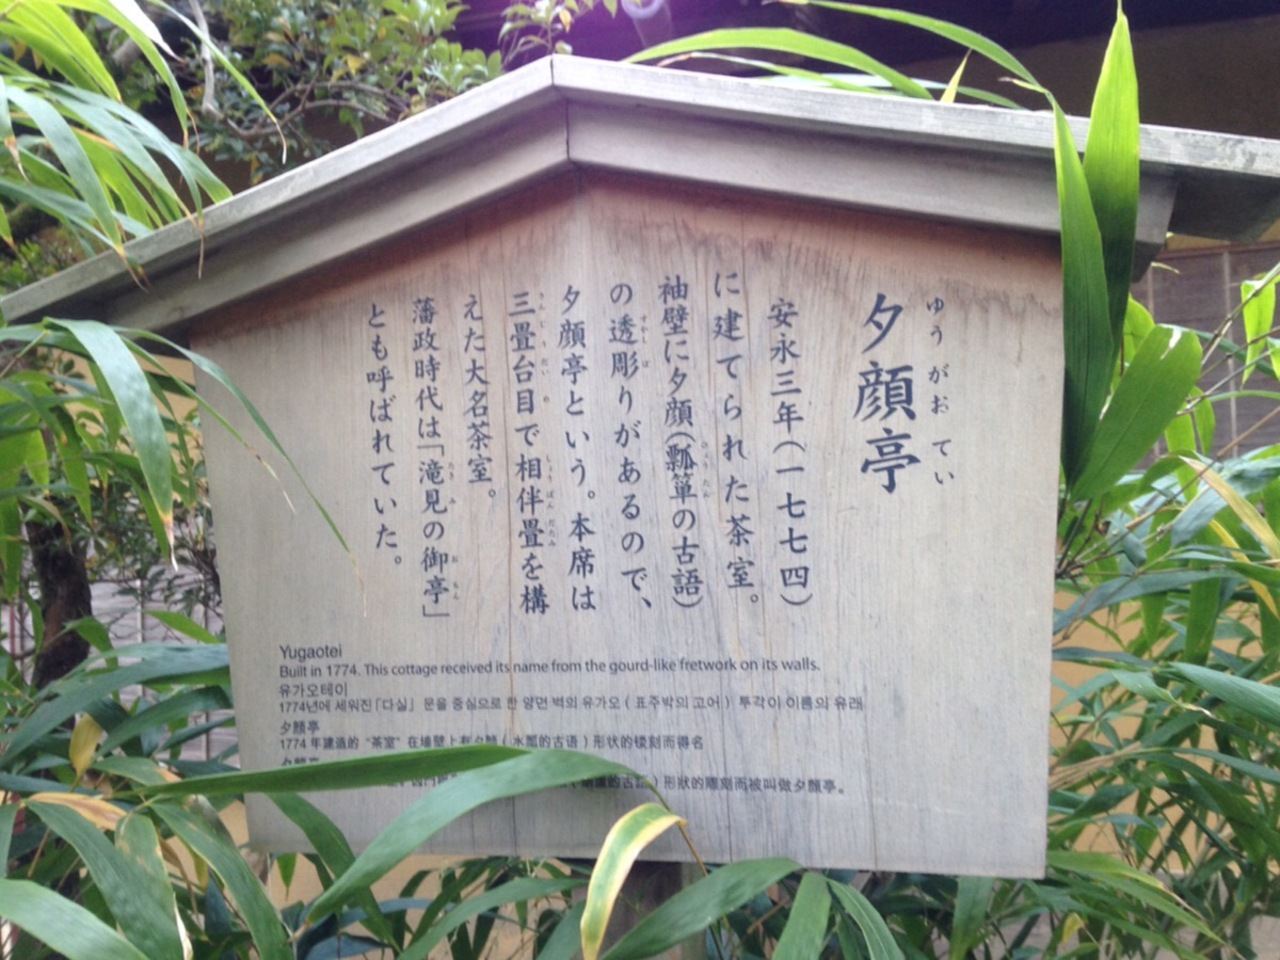 夕顔亭
ゆうがおてい
安永三年(一七七四)
に建てられた茶室。
袖壁に夕顔(瓢箪の古語)
ひょうたん
の透彫りがあるので、
すかしぼ
夕顔亭という。本席は
三畳台目で相伴畳を構
さんじょうだいめ しょうばんだたみ
えた大名茶室。
藩政時代は「滝見の御亭」
たきみ おちん
とも呼ばれていた。
Yugaotei
Built in 1774. This cottage received its name from the gourd-like fretwork on its walls.
유가오테이
1774년에 세워진「다실」 문을 중심으로 한 양면 벽의 유가오 ( 표주박의 고어 ) 투각이 이름의 유래
夕顏亭
1774 年建造的 "茶室" 在墙壁上有夕顏 ( 水瓢的古语 ) 形状的镂刻而得名
夕顏亭
的古語 ) 形狀的雕刻而被叫做夕顏亭。